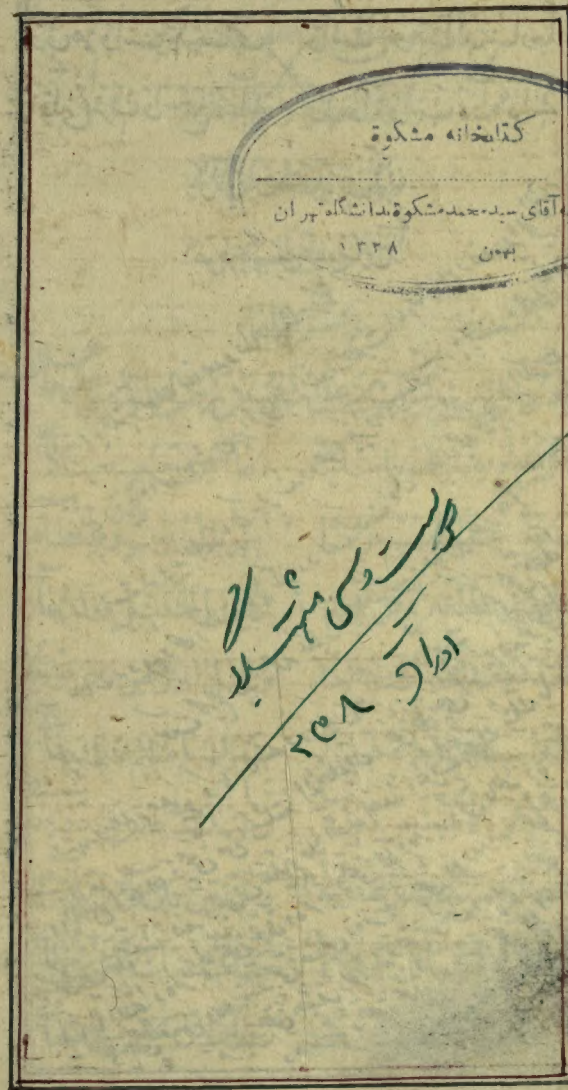 کتابخانه مشکوة
آقای سید محمد مشکوة بدانشگاه تهران
بهمن ۱۳۲۸
دویست و سی و هشت
اوراق ۲۳۸